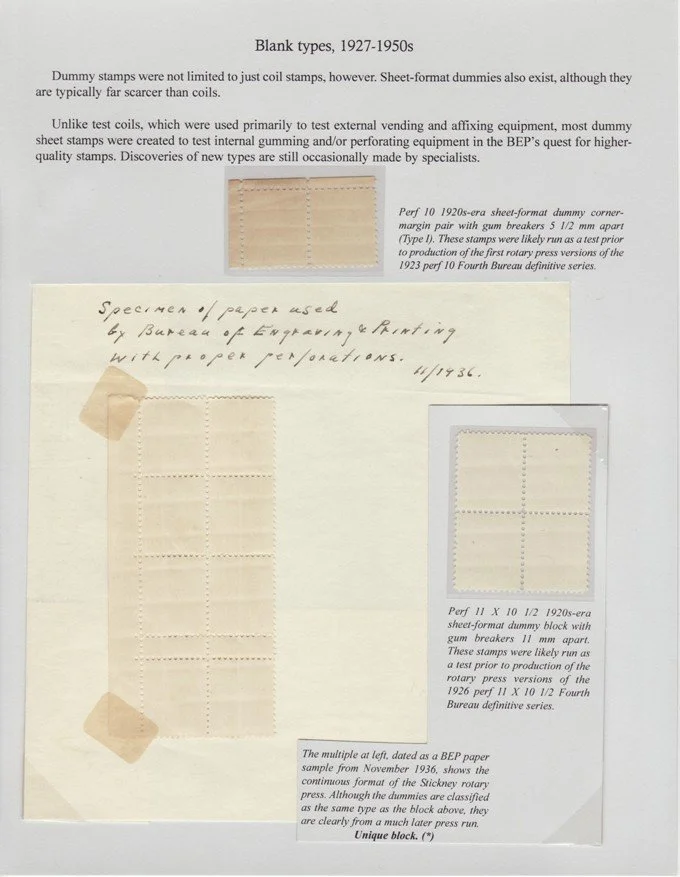 Blank types, 1927-1950s
Dummy stamps were not limited to just coil stamps, however. Sheet-format dummies also exist, although they
are typically far scarcer than coils.
Unlike test coils, which were used primarily to test external vending and affixing equipment, most dummy
sheet stamps were created to test internal gumming and/or perforating equipment in the BEP's quest for higher-
quality stamps. Discoveries of new types are still occasionally made by specialists.
Perf 10 1920s-era sheet-format dummy corner-
margin pair with gum breakers 5 1/2 mm apart
(Type I). These stamps were likely run as a test prior
to production of the first rotary press versions of the
1923 perf 10 Fourth Bureau definitive series.
Specimen of paper used
by Bureau of Engraving & Printing
with proper perforations.
11/1936.
Perf 11 X 10 1/2 1920s-era
sheet-format dummy block with
gum breakers 11 mm apart.
These stamps were likely run as
a test prior to production of the
rotary press versions of the
1926 perf 11 X 10 1/2 Fourth
Bureau definitive series.
The multiple at left, dated as a BEP paper
sample from November 1936, shows the
continuous format of the Stickney rotary
press. Although the dummies are classified
as the same type as the block above, they
are clearly from a much later press run.
Unique block. (*)